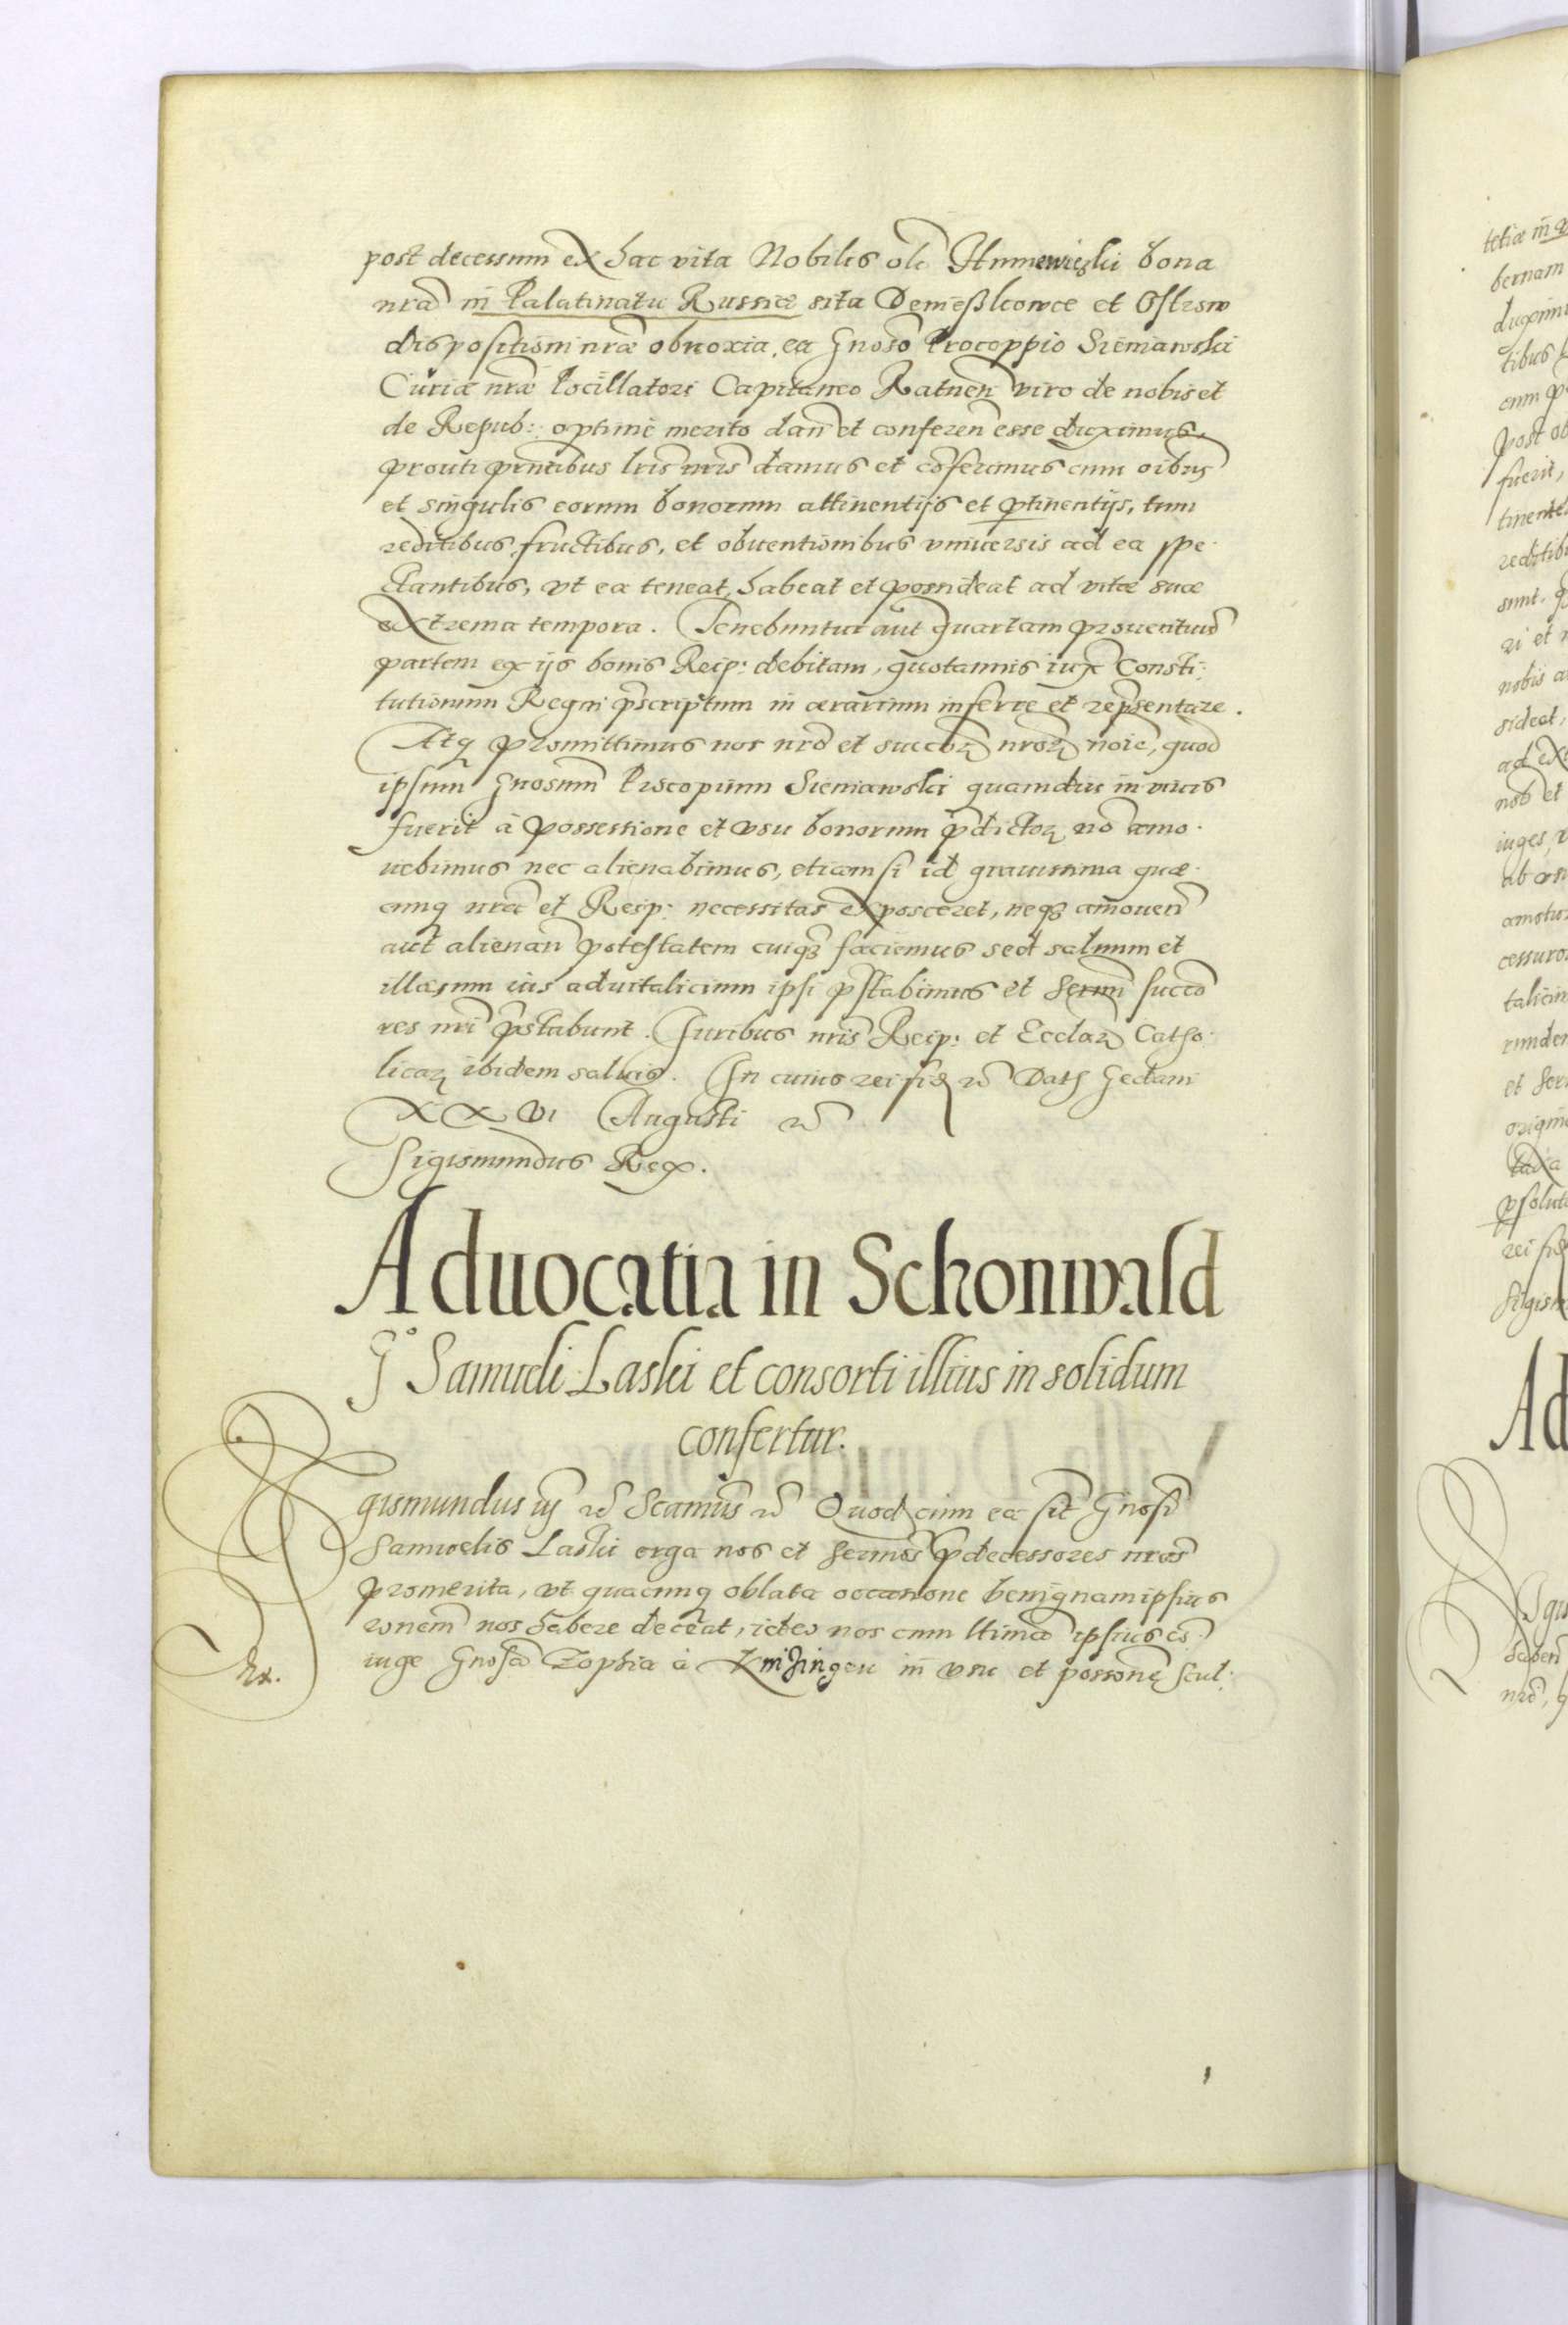 post decessum ex hac vita Nobilis oli Humnewieski bona
nra in Palatinatu Russiæ sita Demeßkowce et Ostrow
dispositioni nræ obnoxia, ea Gnoso Procoppio Sieniawski
Curiæ nræ Pocillatori Capitaneo Ratnen viro de nobis et
de Repub: optime merito dan et conferen esse duximus,
prouti pntibus lris nris damus et coferimus cum oibus
et singulis eorum bonorum attinentijs et ptinentijs, tum
reditibus, fructibus, et obuentionibus vniuersis ad ea spe
ctantibus, vt ea teneat, habeat et possideat ad vitæ suæ
extrema tempora. Tenebuntur aut quartam prouentuu
partem ex ijs bonis Reip: debitam, quotannis iux Consti:
tutionum Regni pscriptum in ærarium inferre et repsentare.
Atq promittimus nos nro et succor nror noie, quod
ipsum Gnosum Procopium Sieniawski quamdiu in viuis
fuerit à possessione et vsu bonorum pdictor no amo
uebimus nec alienabimus, etiam si id grauissima quæ
cunq nra et Reip: necessitas exposceret, neq amouen
aut alienan potestatem cuiq faciemus sed saluum et
illæsum ius aduitalicium ipsi pstabimus et Sermi succo
res nri pstabunt. Juribus nris Reip: et Ecclar Catho
licar ibidem saluis. In cuius rei fid &c Dath Gedani
XXVI Augusti &c
Sigismundus Rex.
Aduocatia in Schonwald
G° Samueli Laski et consorti illius in solidum
confertur.
Sigismundus iij &c Scamus &c Quod cum ea sit Gnosi
Samuelis Laski erga nos et Sermos pdecessores nros
promerita, vt quacunq oblata occasione benignam ipsius
ronem nos habere deceat, ideo nos cum ltima ipsius co
iuge Gnosa Zophia à in vsu et possone scul:
Ex.